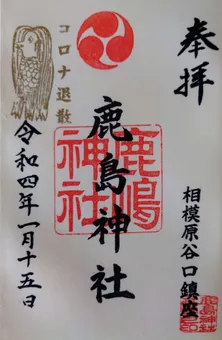 奉拝
相模原谷口鎮座
鹿島神社
鹿嶋
神社
コロナ退散
令和四年一月十五日